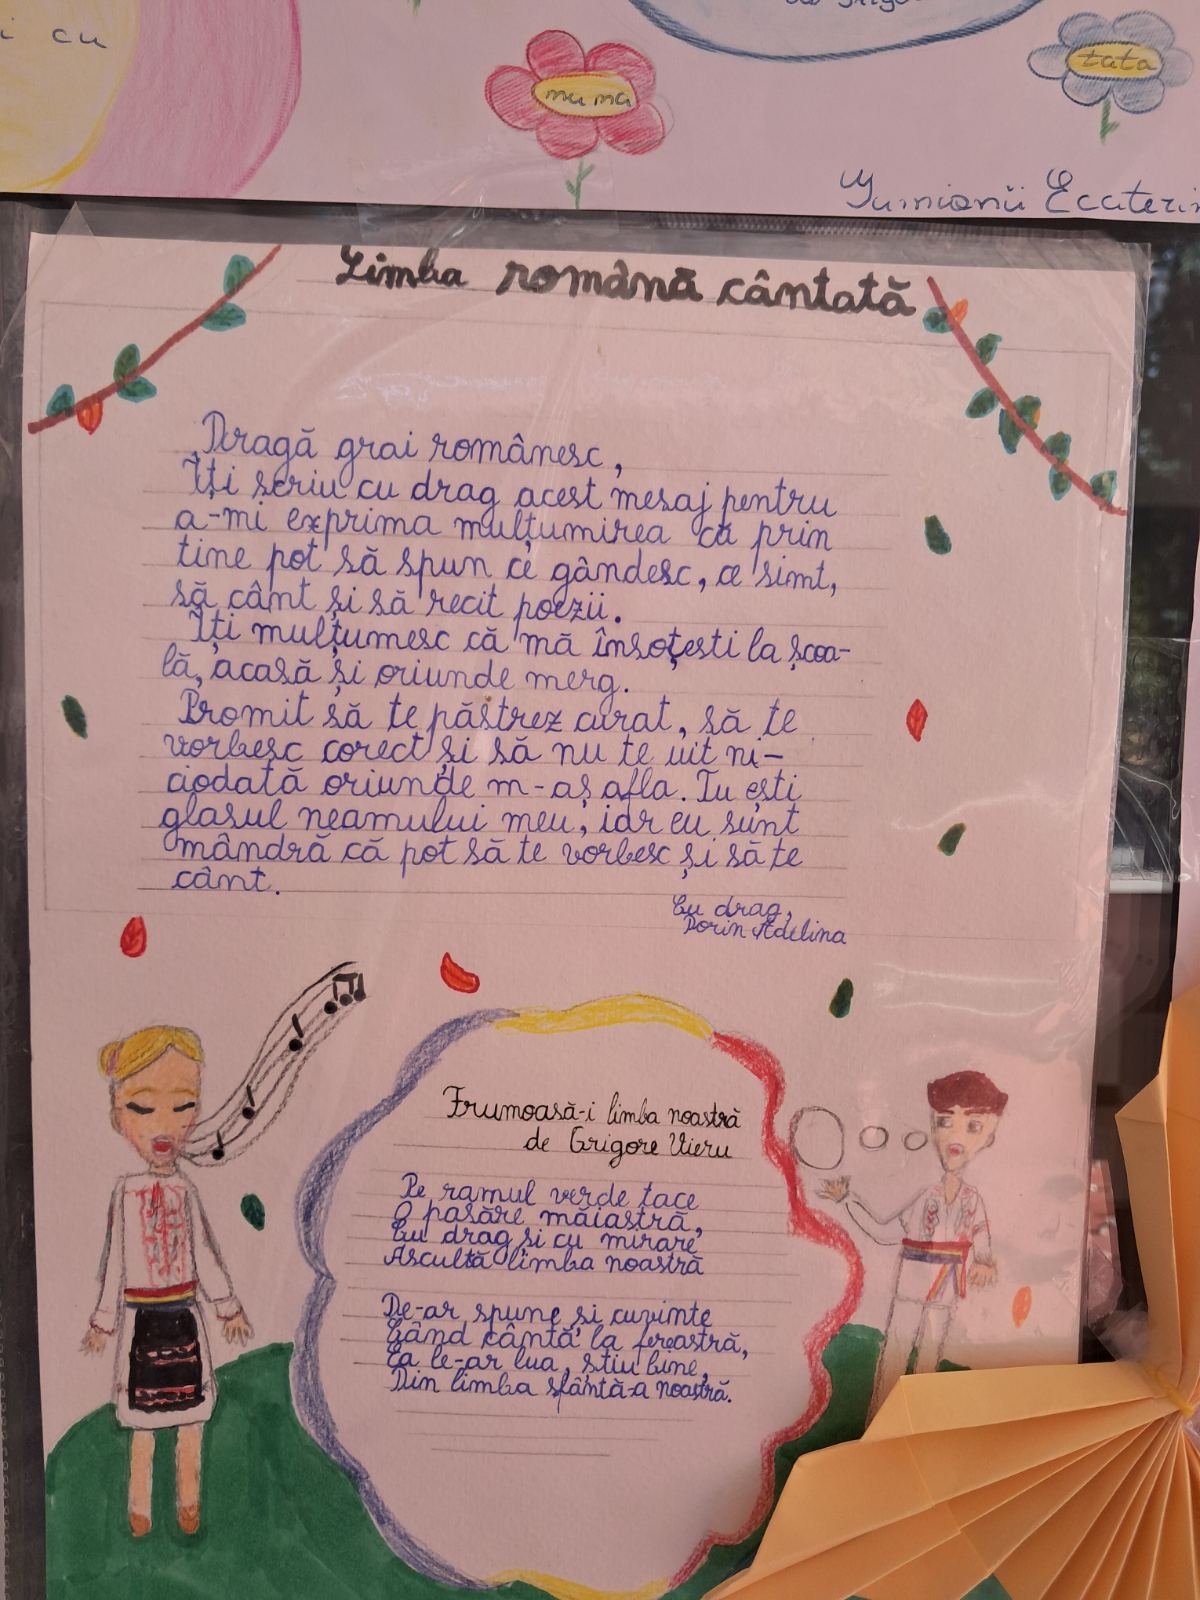 i cu
mama
tata
Limba română cântată
Dragă grai românesc,
Îți scriu cu drag acest mesaj pentru
a-mi exprima mulțumirea că prin
tine pot să spun ce gândesc, ce simt,
să cânt și să recit poezii.
Îți mulțumesc că mă însoțești la școa-
lă, acasă și oriunde merg.
Promit să te păstrez curat, să te
vorbesc corect și să nu te uit ni-
ciodată oriunde m-aș afla. Tu ești
glasul neamului meu, iar eu sunt
mândră că pot să te vorbesc și să te
cânt.
Cu drag,
Dorin Adelina
Frumoasă-i limba noastră
de Grigore Vieru
Pe ramul verde tace
O pasăre măiastră,
Cu drag și cu mirare
Ascultă limba noastră
De-ar spune și cuvinte
Când cântă la fereastră,
Ea le-ar lua, știu bine,
Din limba sfântă-a noastră.